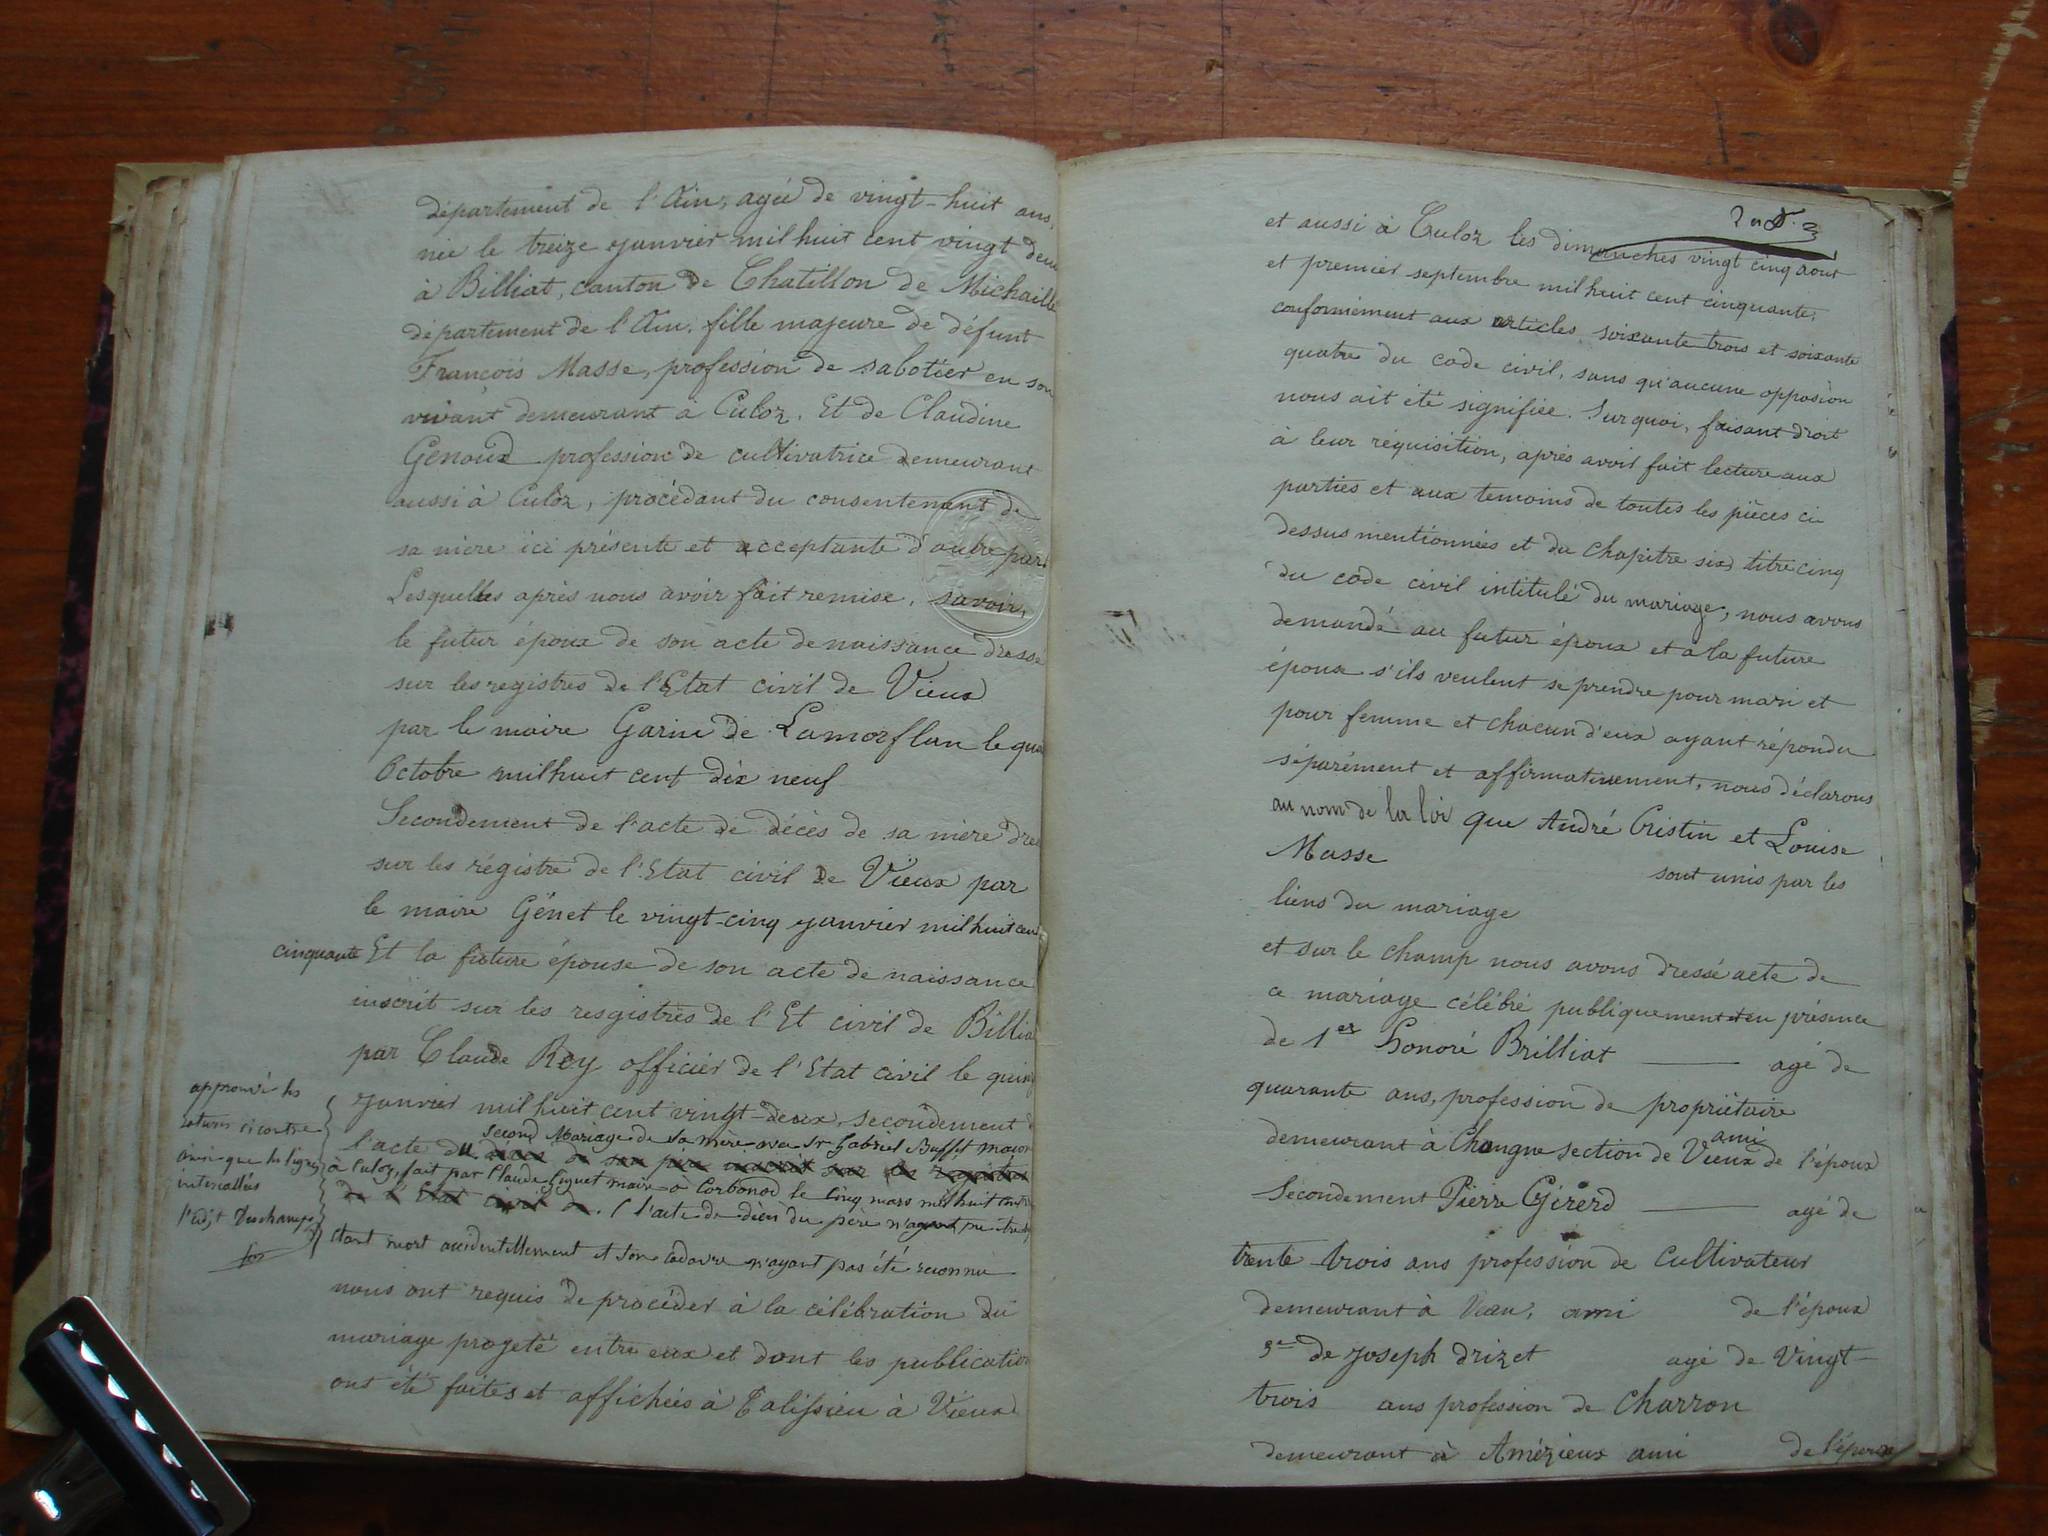 département de l'Ain, agée de vingt-huit ans,
née le treize janvier mil huit cent vingt deux
à Billiat, canton de Chatillon de Michaille
département de l'Ain. fille majeure de défunt
François Masse, profession de sabotier en son
vivant demeurant à Culoz. Et de Claudine
Genoud profession de cultivatrice demeurant
aussi à Culoz, procédant du consentement de
sa mère ici présente et acceptante d'autre part.
Lesquelles après nous avoir fait remise, savoir,
le futur époux de son acte de naissance dressé
sur les registres de l'Etat civil de Vieux
par le maire Garin de Lamorflan le qua
Octobre mil huit cent dix neuf
Secondement de l'acte de décès de sa mère dre
sur les régistre de l'Etat civil de Vieux par
le maire Génet le vingt-cinq janvier mil huit cent
cinquante Et la future épouse de son acte de naissance
inscrit sur les resgistres de l'Et civil de Billia
par Claude Roy officier de l'Etat civil le quin
janvier mil huit cent vingt-deux, secondement d
second Mariage de sa mère avec Sr Gabriel Buffet maçon
l'acte du décès de son père inscrit sur les registres
à Culoz, fait par Claude Liguet maire à Corbonod le cinq mars mil huit cent
de l'Etat civil de. (l'acte de décès du père n'ayant pu être
étant mort accidentellement et son cadavre n'ayant pas été reconnu
nous ont requis de procéder à la célébration du
mariage projeté entre eux et dont les publication
ont été faites et affichées à Talissieu à Vieux
approuvé les
ratures ci contre
ainsi que les lignes
intercallées
l'adjt Deschamps
et aussi à Culoz les dimanches vingt cinq aout
et premier septembre mil huit cent cinquante,
conformément aux articles, soixante trois et soixante
quatre du code civil, sans qu'aucune opposion
nous ait été signifiée. Sur quoi, faisant droit
à leur réquisition, après avoir fait lecture aux
parties et aux temoins de toutes les pièces ci
dessus mentionnées et du chapitre six titre cinq
du code civil intitulé du mariage, nous avons
demandé au futur époux et a la future
épouse s'ils veulent se prendre pour mari et
pour femme et chacun d'eux ayant répondu
séparément et affirmativement, nous déclarons
au nom de la loi que André Cristin et Louise
Masse sont unis par les
liens du mariage
et sur le champ nous avons dressé acte de
ce mariage célébré publiquement en présence
de 1er Honoré Brilliat agé de
quarante ans, profession de propriétaire
demeurant à Chongne section de Vieux ami de l'époux
Secondement Pierre Girerd agé de
trente trois ans profession de cultivateur
demeurant à Vieu, ami de l'époux
3e de Joseph Drizet agé de Vingt-
trois ans profession de Charron
demeurant à Amézieux ami de l'époux